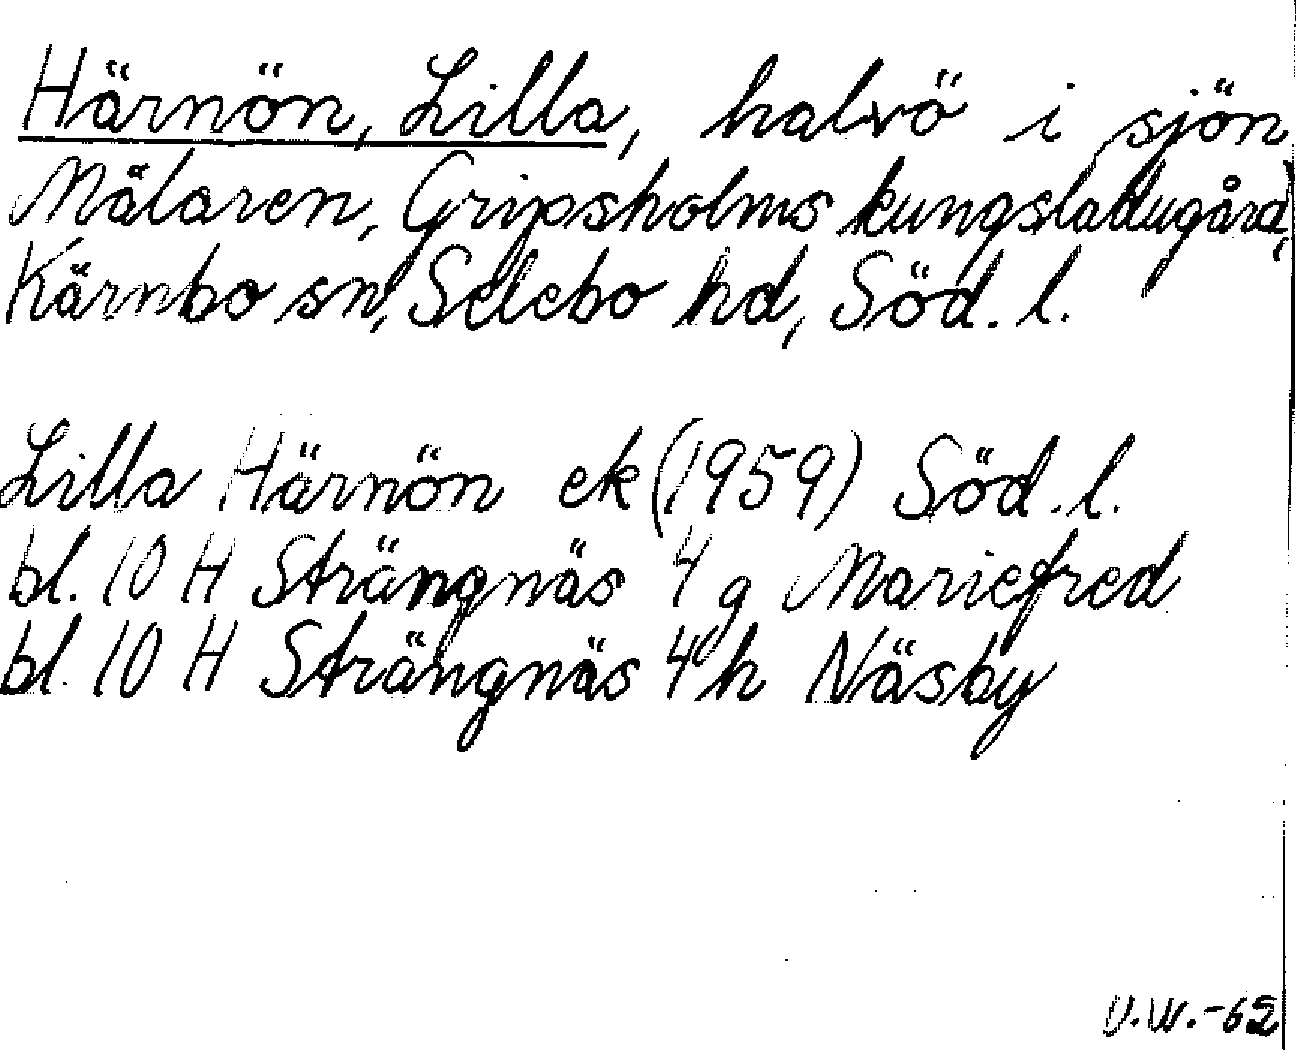 Härnön, Lilla, halvö i sjön
Mälaren, Gripsholms kungsladugård,
Kärnbo sn, Selebo hd, Söd. l.
Lilla Härnön ek (1959) Söd. l.
bl. 10 H Strängnäs 4 g Mariefred
bl. 10 H Strängnäs 4 h Näsby
V.W.-62